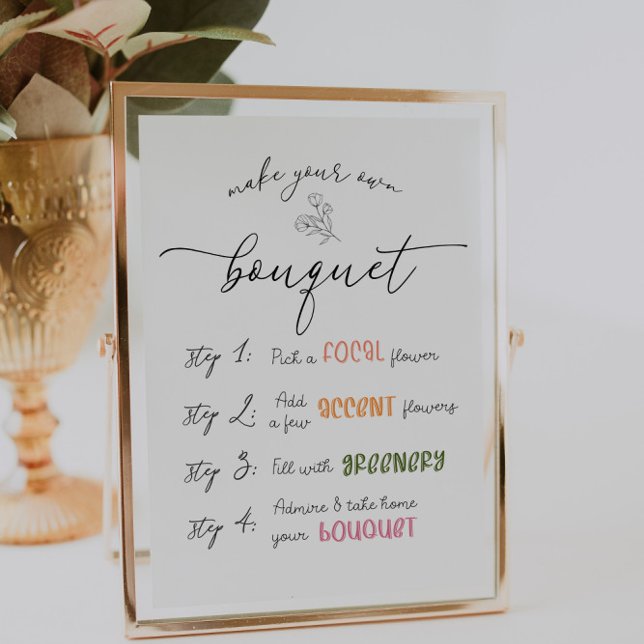 make your own
bouquet
step 1: Pick a FOCAL flower
step 2: Add
a few ACCENT flowers
step 3: Fill with GREENERY
step 4: Admire & take home
your BOUQUET